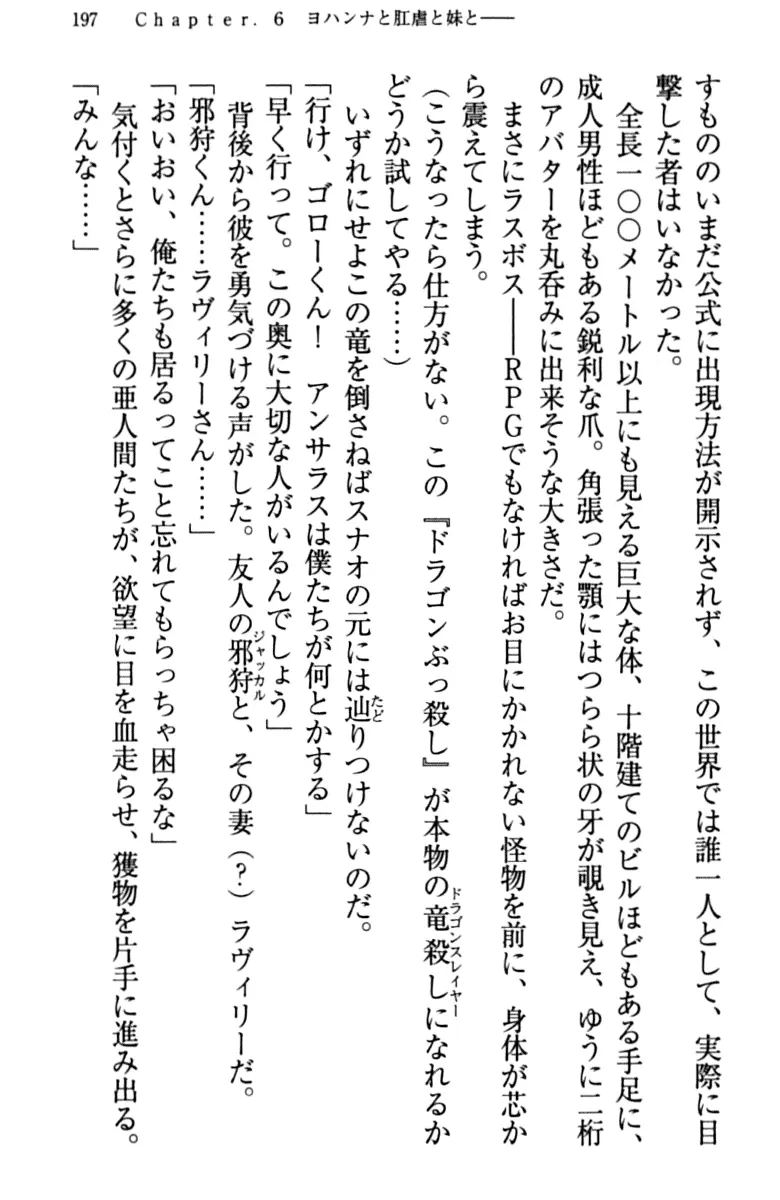 197　Chapter. 6　ヨハンナと肛虐と妹と――
すもののいまだ公式に出現方法が開示されず、この世界では誰一人として、実際に目
撃した者はいなかった。
　全長一〇〇メートル以上にも見える巨大な体、十階建てのビルほどもある手足に、
成人男性ほどもある鋭利な爪。角張った顎にはつらら状の牙が覗き見え、ゆうに二桁
のアバターを丸呑みに出来そうな大きさだ。
　まさにラスボス――RPGでもなければお目にかかれない怪物を前に、身体が芯か
ら震えてしまう。
（こうなったら仕方がない。この『ドラゴンぶっ殺し』が本物の竜殺し（ドラゴンスレイヤー）になれるか
どうか試してやる……）
　いずれにせよこの竜を倒さねばスナオの元には辿（たど）りつけないのだ。
「行け、ゴローくん！　アンサラスは僕たちが何とかする」
「早く行って。この奥に大切な人がいるんでしょう」
　背後から彼を勇気づける声がした。友人の邪狩（ジャッカル）と、その妻（？）ラヴィリーだ。
「邪狩くん……ラヴィリーさん……」
「おいおい、俺たちも居るってこと忘れてもらっちゃ困るな」
　気付くとさらに多くの亜人間たちが、欲望に目を血走らせ、獲物を片手に進み出る。
「みんな……」